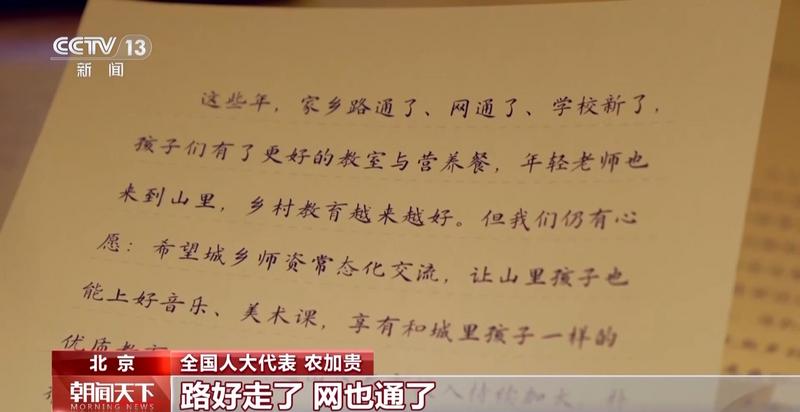 CCTV 13
新闻
这些年，家乡路通了、网通了、学校新了，
孩子们有了更好的教室与营养餐，年轻老师也
来到山里，乡村教育越来越好。但我们仍有心
愿：希望城乡师资常态化交流，让山里孩子也
能上好音乐、美术课，享有和城里孩子一样的
优质教育
入持续加大
北京
全国人大代表 农加贵
朝闻天下
MORNING NEWS
路好走了 网也通了